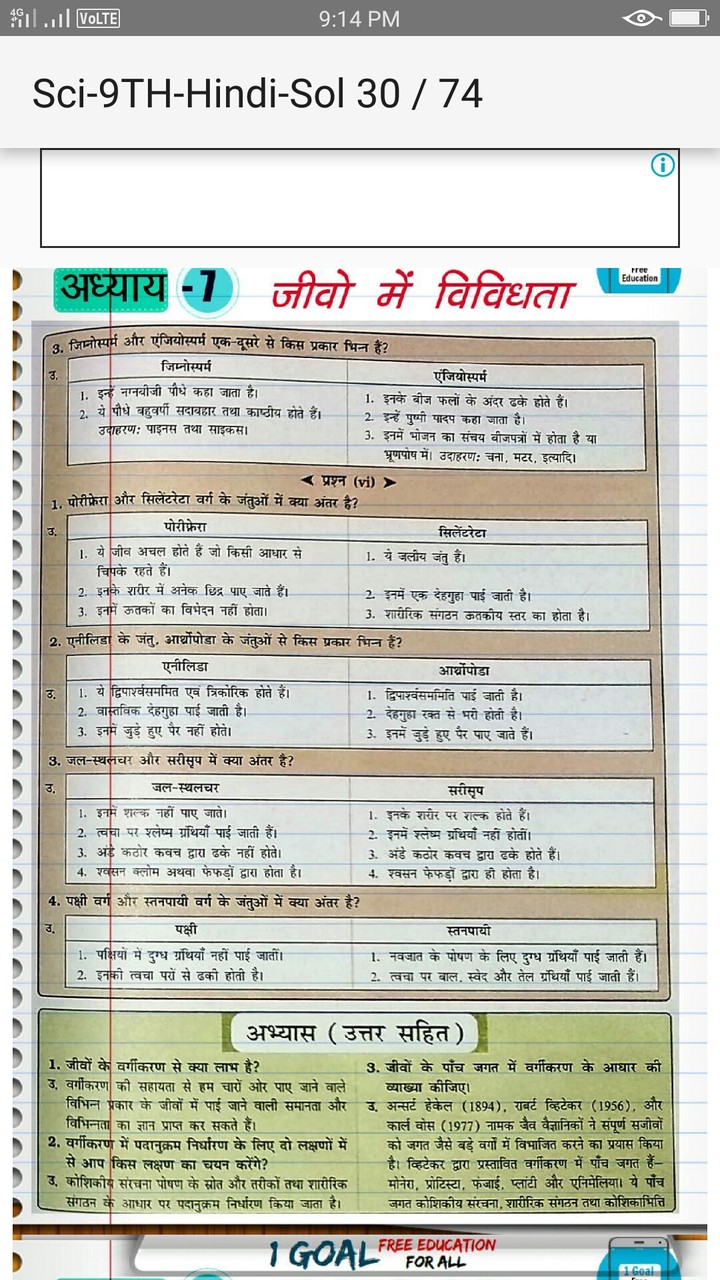 4G VoLTE 9:14 PM
Sci-9TH-Hindi-Sol 30 / 74
Free
Education
अध्याय -7 जीवो में विविधता
3. जिम्नोस्पर्म और एंजियोस्पर्म एक-दूसरे से किस प्रकार भिन्न हैं?
उ. जिम्नोस्पर्म
1. इन्हें नग्नबीजी पौधे कहा जाता है।
2. ये पौधे बहुवर्षी सदाबहार तथा काष्ठीय होते हैं।
उदाहरण: पाइनस तथा साइकस।
एंजियोस्पर्म
1. इनके बीज फलों के अंदर ढके होते हैं।
2. इन्हें पुष्पी पादप कहा जाता है।
3. इनमें भोजन का संचय बीजपत्रों में होता है या
भ्रूणपोष में। उदाहरण: चना, मटर, इत्यादि।
प्रश्न (vi)
1. पोरीफ़ेरा और सिलेंटरेटा वर्ग के जंतुओं में क्या अंतर है?
उ. पोरीफ़ेरा
1. ये जीव अचल होते हैं जो किसी आधार से
चिपके रहते हैं।
2. इनके शरीर में अनेक छिद्र पाए जाते हैं।
3. इनमें ऊतकों का विभेदन नहीं होता।
सिलेंटरेटा
1. ये जलीय जंतु हैं।
2. इनमें एक देहगुहा पाई जाती है।
3. शारीरिक संगठन ऊतकीय स्तर का होता है।
2. एनीलिडा के जंतु, आर्थ्रोपोडा के जंतुओं से किस प्रकार भिन्न हैं?
एनीलिडा
उ. 1. ये द्विपार्श्वसममित एवं त्रिकोरिक होते हैं।
2. वास्तविक देहगुहा पाई जाती है।
3. इनमें जुड़े हुए पैर नहीं होते।
आर्थ्रोपोडा
1. द्विपार्श्वसममिति पाई जाती है।
2. देहगुहा रक्त से भरी होती है।
3. इनमें जुड़े हुए पैर पाए जाते हैं।
3. जल-स्थलचर और सरीसृप में क्या अंतर है?
उ. जल-स्थलचर
1. इनमें शल्क नहीं पाए जाते।
2. त्वचा पर श्लेष्म ग्रंथियाँ पाई जाती हैं।
3. अंडे कठोर कवच द्वारा ढके नहीं होते।
4. श्वसन क्लोम अथवा फेफड़ों द्वारा होता है।
सरीसृप
1. इनके शरीर पर शल्क होते हैं।
2. इनमें श्लेष्म ग्रंथियाँ नहीं होतीं।
3. अंडे कठोर कवच द्वारा ढके होते हैं।
4. श्वसन फेफड़ों द्वारा ही होता है।
4. पक्षी वर्ग और स्तनपायी वर्ग के जंतुओं में क्या अंतर है?
उ. पक्षी
1. पक्षियों में दुग्ध ग्रंथियाँ नहीं पाई जातीं।
2. इनकी त्वचा परों से ढकी होती है।
स्तनपायी
1. नवजात के पोषण के लिए दुग्ध ग्रंथियाँ पाई जाती हैं।
2. त्वचा पर बाल, स्वेद और तेल ग्रंथियाँ पाई जाती हैं।
अभ्यास ( उत्तर सहित )
1. जीवों के वर्गीकरण से क्या लाभ है?
उ. वर्गीकरण की सहायता से हम चारों ओर पाए जाने वाले
विभिन्न प्रकार के जीवों में पाई जाने वाली समानता और
विभिन्नता का ज्ञान प्राप्त कर सकते हैं।
2. वर्गीकरण में पदानुक्रम निर्धारण के लिए दो लक्षणों में
से आप किस लक्षण का चयन करेंगे?
उ. कोशिकीय संरचना पोषण के स्रोत और तरीकों तथा शारीरिक
संगठन के आधार पर पदानुक्रम निर्धारण किया जाता है।
3. जीवों के पाँच जगत में वर्गीकरण के आधार की
व्याख्या कीजिए।
उ. अन्सर्ट हेकेल (1894), राबर्ट व्हिटेकर (1956), और
कार्ल वोस (1977) नामक जैव वैज्ञानिकों ने संपूर्ण सजीवों
को जगत जैसे बड़े वर्गों में विभाजित करने का प्रयास किया
है। व्हिटेकर द्वारा प्रस्तावित वर्गीकरण में पाँच जगत हैं–
मोनेरा, प्रोटिस्टा, फंजाई, प्लांटी और एनिमेलिया। ये पाँच
जगत कोशिकीय संरचना, शारीरिक संगठन तथा कोशिकाभित्ति
1 GOAL FREE EDUCATION
FOR ALL
1 Goal